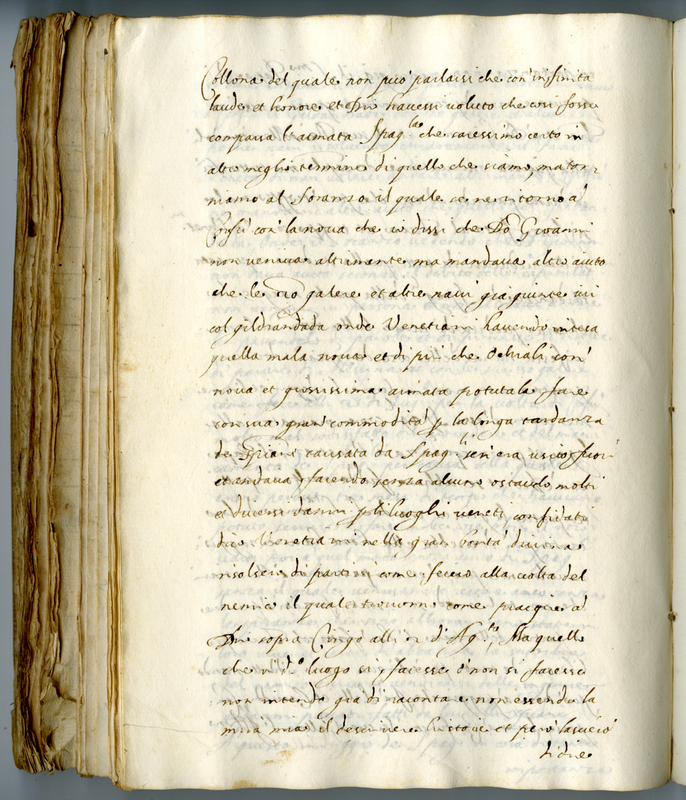 Collona del quale non può parlarsi che con infinita
laude et honore et Dio havessi voluto che cosi fosse
comparsa l'armata Spag.la che saressimo certo in
altro meglio termine di quello che siamo, ma tor,
niamo al Soranzo il quale se ne ritornò a'
Corfù con la nova che io dissi che Do Giovanni
non veniva altrimante ma mandava altro aiuto
che le galere et altre navi gia giunte ivi
col gildrandada onde Venetiani havendo intesa
quella mala nova et di più che Ochiali con
nova et grossissima armata potutala fare
con sua gran commodità p la longa tardanza
de Xpiani causata da Spag.li sen' era uscito fuori
et andava facendo senza alcuno ostacolo molti
et diversi danni p li luoghi veneti confidati
dico Venetiani nella gran bontà divina
risolsero di partirsi come fecero alla volta del
nemico il quale trovorno come piacque a
Dio sopra Cirigo alli di Ag.to, Ma quello
che in do luogo sa, facesse ò non si facesse
non intendo già di racontare non essendo la
mira mia il descrivere historie et però lasciò
di dire